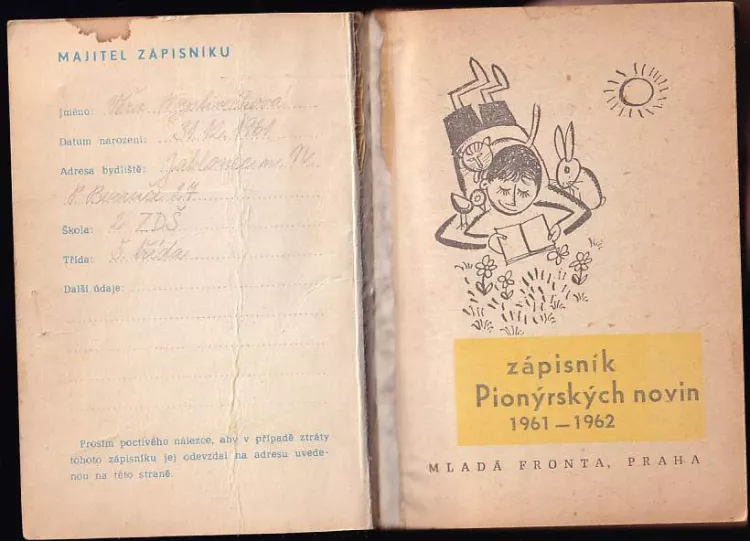 MAJITEL ZÁPISNÍKU
Jméno: Věra
Datum narození: 31. 12. 1961
Adresa bydliště: Jablonec n. N.
P. Bezruče 27
Škola: 2. ZDŠ
Třída: 5. třída
Další údaje:
Prosím poctivého nálezce, aby v případě ztráty
tohoto zápisníku jej odevzdal na adresu uvede-
nou na této straně.
zápisník
Pionýrských novin
1961—1962
MLADÁ FRONTA, PRAHA